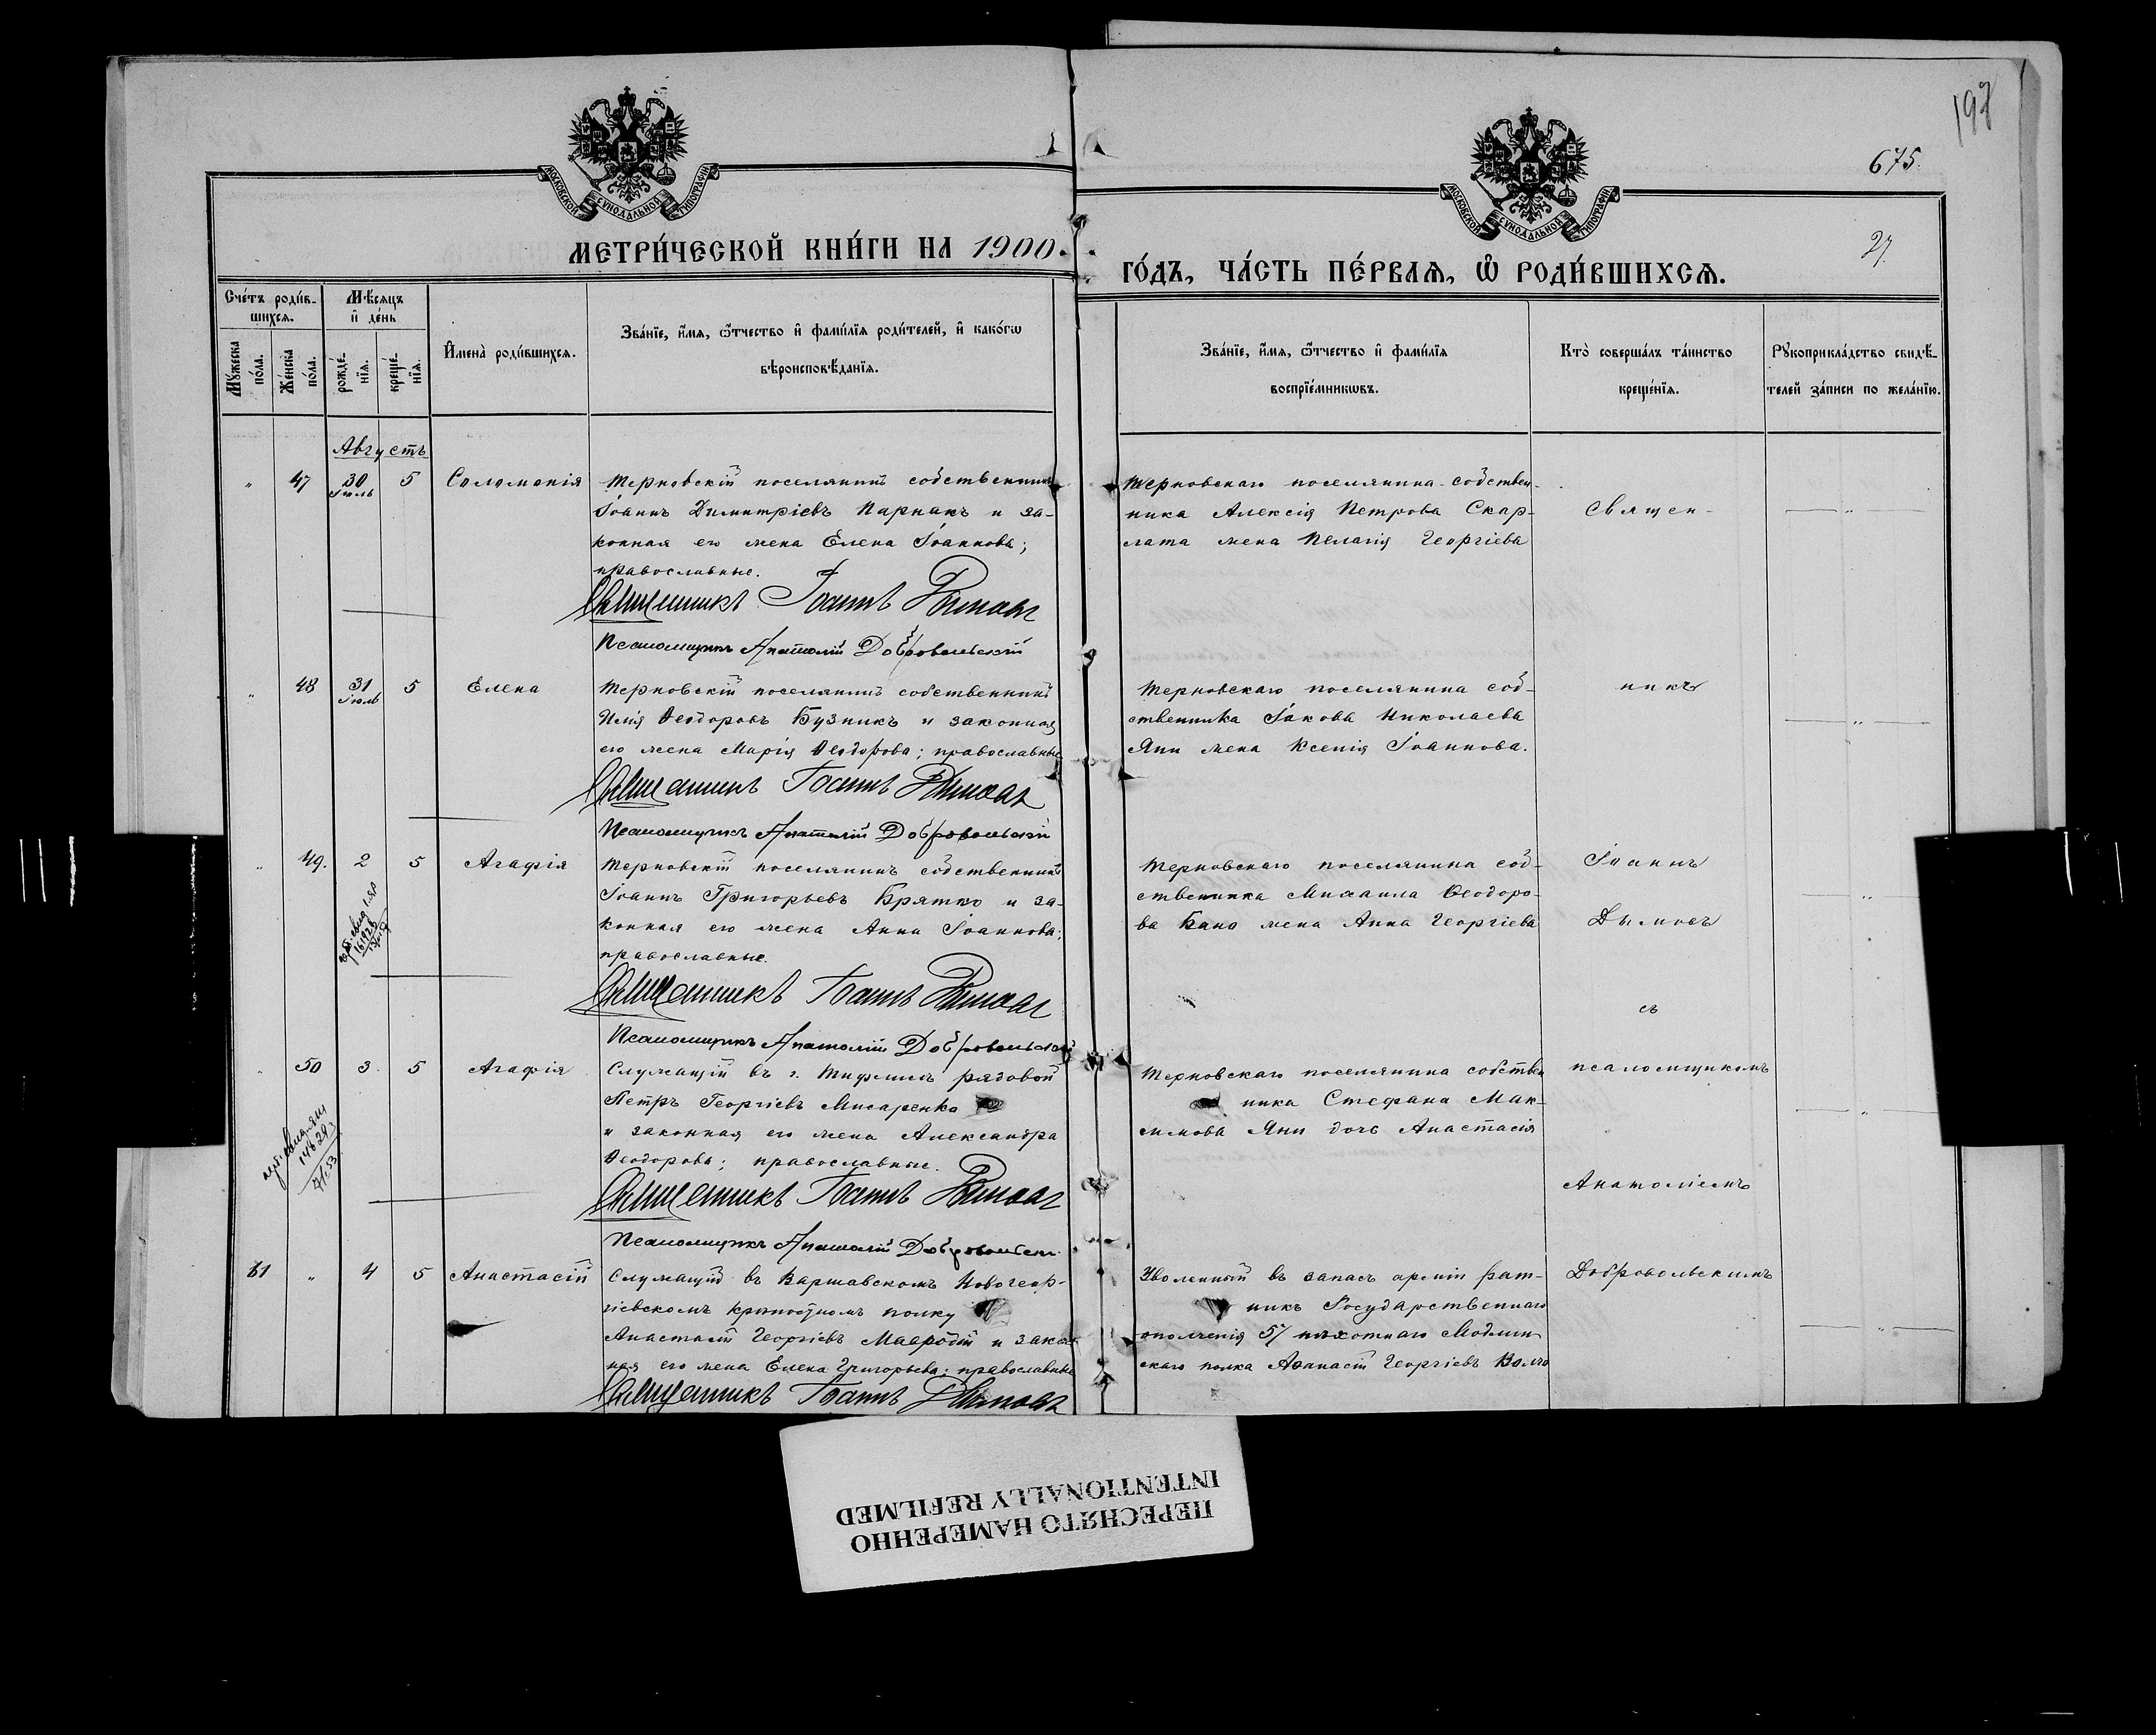 198
675.
27
МОСКОВСКОЙ СѴНОДАЛЬНОЙ ТИПОГРАФІИ
МОСКОВСКОЙ СѴНОДАЛЬНОЙ ТИПОГРАФІИ
МЕТРИ́ЧЕСКОЙ КНИ́ГИ НА 1900.
ГО́ДЪ, ЧА́СТЬ ПЕ́РВАѦ, Ѿ РОДИ́ВШИХСѦ.
Сче́тъ роди́в-
шихсѧ.
Мꙋ́жеска
по́ла.
Же́нска
по́ла.
Мѣ́сѧцъ
и҆ де́нь
рожде́-
нїѧ.
креще́-
нїѧ.
И҆мена̀ роди́вшихсѧ.
Зва́нїе, и҆́мѧ, ѻ҆́тчество и҆ фамі́лїѧ роди́телей, и҆ како́гѡ
вѣроисповѣ́данїѧ.
Зва́нїе, и҆́мѧ, ѻ҆́тчество и҆ фамі́лїѧ
воспрїе́мникѡвъ.
Кто̀ соверша́лъ та́инство
креще́нїѧ.
Рꙋкоприкла́дство свидѣ́-
телей за́писи по жела́нїю.
Августъ
" 47 30 Іюль 5 Соломонія
Терновскій поселянинъ собственникъ
Іоаннъ Димитріевъ Парнакъ и за-
конная его жена Елена Іоаннова;
православные.
Священникъ Іоаннъ Дымовъ
Псаломщикъ Анатолій Добровольскій
Терновскаго поселянина собствен-
ника Алексія Петрова Скар-
лата жена Пелагія Георгіева
Священ-
"
" 48 31 Іюль 5 Елена
Терновскій поселянинъ собственникъ
Илія Ѳеодоровъ Бузникъ и законная
его жена Марія Ѳеодорова; православные
Священникъ Іоаннъ Дымовъ
Псаломщикъ Анатолій Добровольскій
Терновскаго поселянина соб-
ственника Іакова Николаева
Яни жена Ксенія Іоаннова.
никъ
"
" 49. 2 5 Агафія
Терновскій поселянинъ собственникъ
Іоаннъ Григорьевъ Братко и за-
конная его жена Анна Іоаннова;
православные.
Священникъ Іоаннъ Дымовъ
Псаломщикъ Анатолій Добровольскій
Терновскаго поселянина соб-
ственника Михаила Ѳеодоро-
ва Кано жена Анна Георгіева
Іоаннъ
Дымовъ
съ
"
" 50 3. 5 Агафія
Служащій въ г. Тифлисѣ рядовой
Петръ Георгіевъ Писаренко
и законная его жена Александра
Ѳеодорова; православные.
Священникъ Іоаннъ Дымовъ
Псаломщикъ Анатолій Добровольскій
Терновскаго поселянина собствен
ника Стефана Мак-
симова Яни дочь Анастасія
псаломщикомъ
Анатоліемъ
"
51 " 4 5 Анастасій
Служащій въ Варшавскомъ Новогеор-
гіевскомъ крѣпостномъ полку
Анастасій Георгіевъ Мавродій и закон
ная его жена Елена Григорьева; православные
Священникъ Іоаннъ Дымовъ
Уволенный въ запасъ арміи рат-
никъ Государственнаго
ополченія 57 пѣхотнаго Модлин
скаго полка Аѳанасій Георгіевъ
Добровольскимъ
"
ПЕРЕСНЯТО НАМЕРЕННО
INTENTIONALLY REFILMED